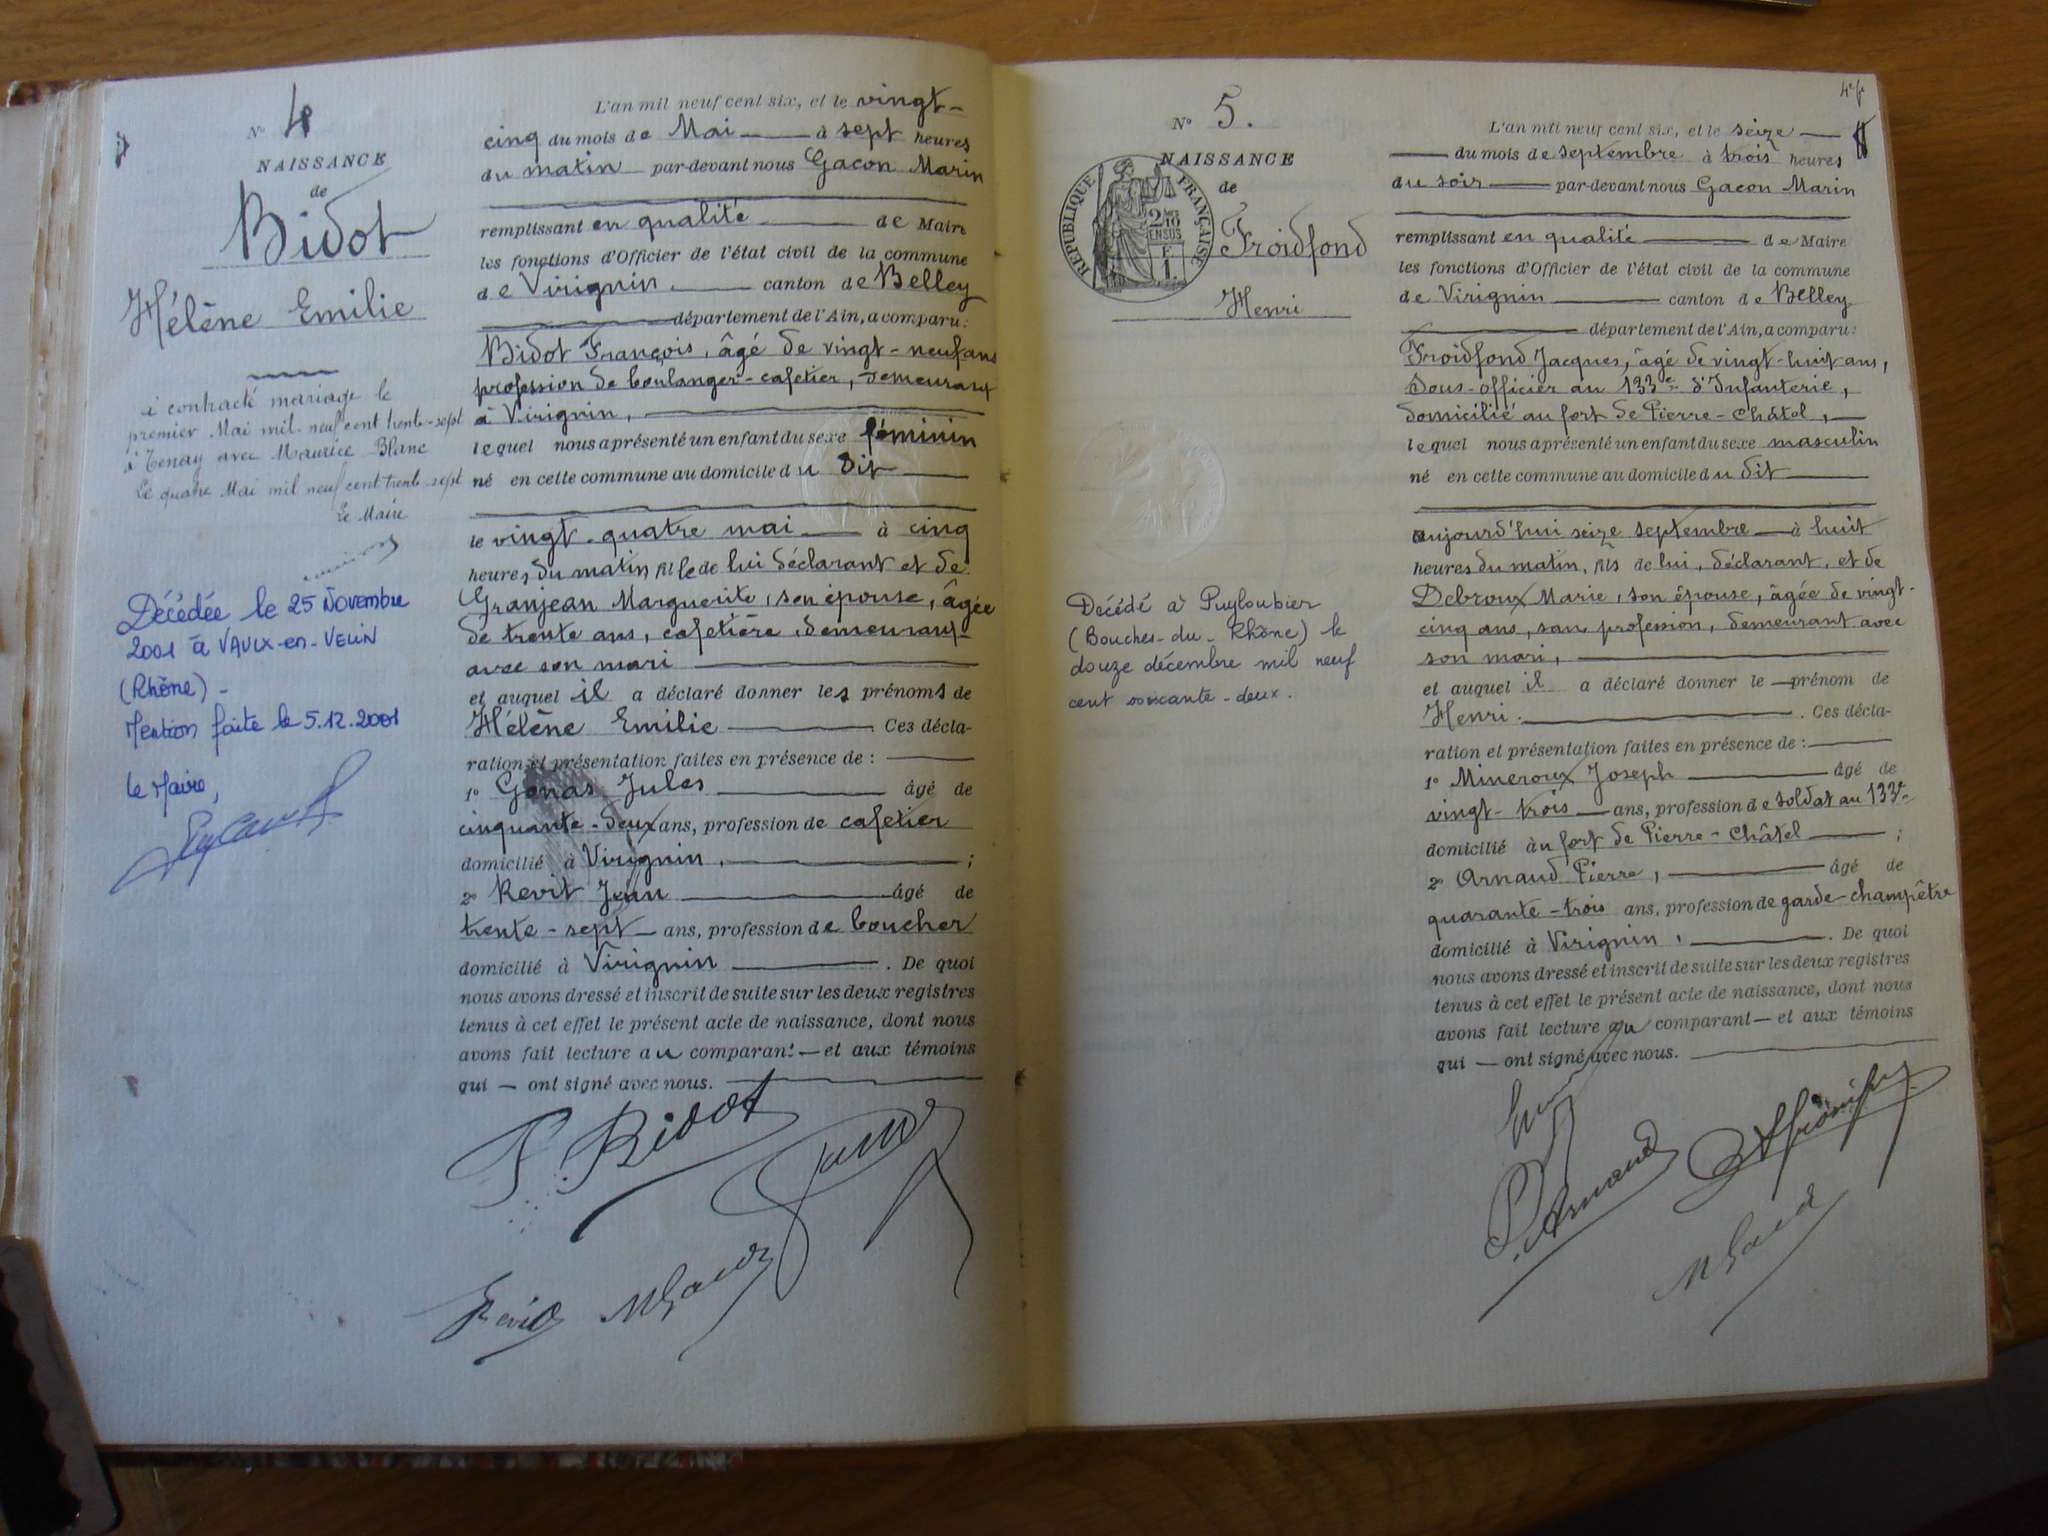 N° 4
NAISSANCE
de
Bidot
Hélène Emilie
a contracté mariage le
premier Mai mil neuf cent trente-sept
à Tenay avec Maurice Blanc
Le quatre Mai mil neuf cent trente-sept
Le Maire
Décédée le 25 Novembre
2001 à VAULX-en-VELIN
(Rhône) -
Mention faite le 5.12.2001
le Maire,
L'an mil neuf cent six, et le vingt-
cinq du mois de Mai à sept heures
du matin par-devant nous Gacon Marin
remplissant en qualité de Maire
les fonctions d'Officier de l'état civil de la commune
de Virignin canton de Belley
département de l'Ain, a comparu:
Bidot François, âgé de vingt-neuf ans
profession de boulanger-cafetier, demeurant
à Virignin,
lequel nous a présenté un enfant du sexe féminin
né en cette commune au domicile du dit
le vingt-quatre mai à cinq
heures du matin fille de lui déclarant et de
Granjean Marguerite, son épouse, âgée
de trente ans, cafetière, demeurant
avec son mari
et auquel il a déclaré donner les prénoms de
Hélène Emilie Ces décla-
ration et présentation faites en présence de :
1° Gonas Jules âgé de
cinquante-deux ans, profession de cafetier
domicilié à Virignin, ;
2° Revit Jean âgé de
trente-sept ans, profession de boucher
domicilié à Virignin . De quoi
nous avons dressé et inscrit de suite sur les deux registres
tenus à cet effet le présent acte de naissance, dont nous
avons fait lecture au comparant — et aux témoins
qui — ont signé avec nous.
F. Bidot
Revit MGacon
4e f
N° 5.
NAISSANCE
de
Froidfond
Henri
RÉPUBLIQUE FRANÇAISE
2/10
EN SUS
F.
1.
Décédé à Puyloubier
(Bouches-du-Rhône) le
douze décembre mil neuf
cent soixante-deux.
L'an mil neuf cent six, et le seize
du mois de septembre à trois heures
du soir par-devant nous Gacon Marin
remplissant en qualité de Maire
les fonctions d'Officier de l'état civil de la commune
de Virignin canton de Belley
département de l'Ain, a comparu:
Froidfond Jacques, âgé de vingt-huit ans,
Sous-officier au 133e d'Infanterie,
domicilié au fort de Pierre-Châtel,
lequel nous a présenté un enfant du sexe masculin
né en cette commune au domicile du dit
aujourd'hui seize septembre à huit
heures du matin, fils de lui, déclarant, et de
Debroux Marie, son épouse, âgée de vingt-
cinq ans, sans profession, demeurant avec
son mari,
et auquel il a déclaré donner le — prénom de
Henri. . Ces décla-
ration et présentation faites en présence de :
1° Mineroux Joseph âgé de
vingt-trois ans, profession de soldat au 133e
domicilié au fort de Pierre-Châtel ;
2° Arnaud Pierre, âgé de
quarante-trois ans, profession de garde-champêtre
domicilié à Virignin, . De quoi
nous avons dressé et inscrit de suite sur les deux registres
tenus à cet effet le présent acte de naissance, dont nous
avons fait lecture au comparant — et aux témoins
qui — ont signé avec nous.
P. Arnaud
MGacon